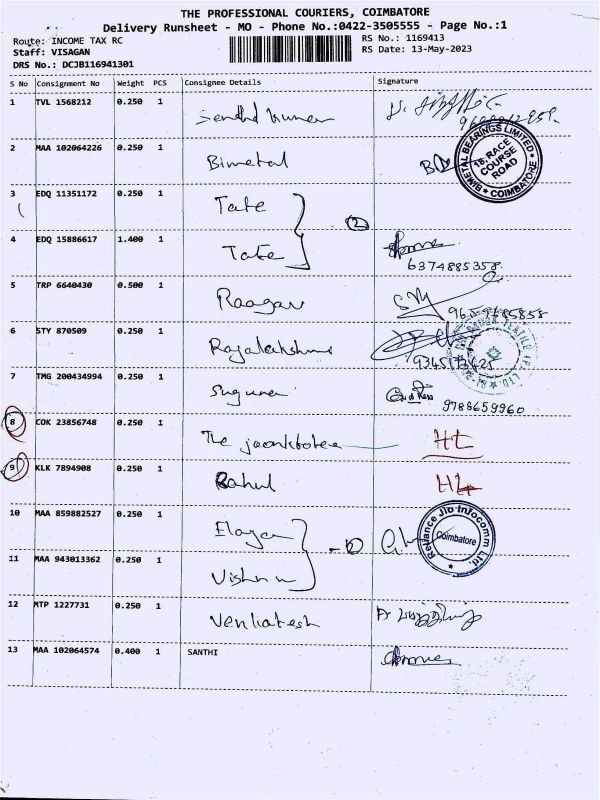 THE PROFESSIONAL COURIERS, COIMBATORE
Delivery Runsheet - MO - Phone No.:0422-3505555 - Page No.:1
Route: INCOME TAX RC
RS No.: 1169413
Staff: VISAGAN
RS Date: 13-May-2023
DRS No.: DCJB116941301
S No Consignment No Weight PCS Consignee Details Signature
1 TVL 1568212 0.250 1
2 MAA 102064226 0.250 1 Bimetal
BIMETAL BEARINGS LIMITED
18, RACE
COURSE
ROAD
COIMBATORE
3 EDQ 11351172 0.250 1 Tate
2
4 EDQ 15886617 1.400 1 Tate
6374885358
5 TRP 6640430 0.500 1 Raagav
6 STY 870509 0.250 1 Rajalakshmi
7 TMG 200434994 0.250 1 Suguna
9788659960
8 COK 23856748 0.250 1 The
9 KLK 7894908 0.250 1 Rahul
10 MAA 859882527 0.250 1
Reliance Jio Infocomm Ltd.
Coimbatore
11 MAA 943013362 0.250 1 Vishnu
12 MTP 1227731 0.250 1 Venkatesh
13 MAA 102064574 0.400 1 SANTHI